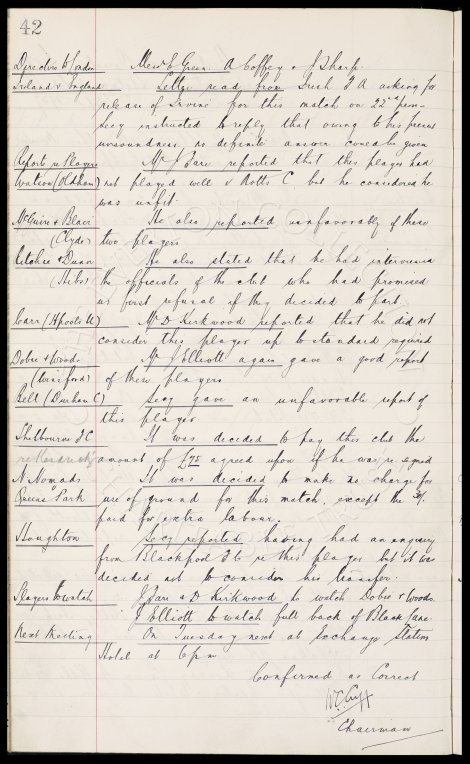 42
Directors to London Messrs E Green A Coffey & J Sharp.
Ireland v England Letter read from Irish F A asking for
release of Irvine for this match on 22nd prox-
Secy instructed to reply that owing to his present
unsoundness, no definite answer could be given
Reports re Players Mr J Farr reported that this player had
Watson (Oldham) not played well v Notts C, but he considered he
was unfit.
McGuire & Blair He also reported unfavorably of these
(Clyde) two players
Ritchie & Dunn He also stated that he had interviewed
(Hibs) the officials of the club who had promised
us first refusal if they decided to part.
Carr (Hpools U) Mr D Kirkwood reported that he did not
consider this player up to standard required
Dobie & Woods Mr J Elliott again gave a good report
(Winsford) of these players
Bell (Durham C) Secy gave an unfavorable report of
this player.
Shelbourne F C It was decided to pay this club the
amount of £75 agreed upon if he was re-signed
N. Nomads It was decided to make no charge for
Queens Park use of ground for this match, except the
paid for extra labour.
Houghton Secy reported having had an enquiry
from Blackpool F C re this player but it was
decided not to consider his transfer.
Players to watch J Farr & D Kirkwood to watch Dobie & Woods
J Elliott to watch full back of Black Lane
Next Meeting On Tuesday next at Exchange Station
Hotel at 6 pm
Confirmed as Correct
W C Cuff
Chairman